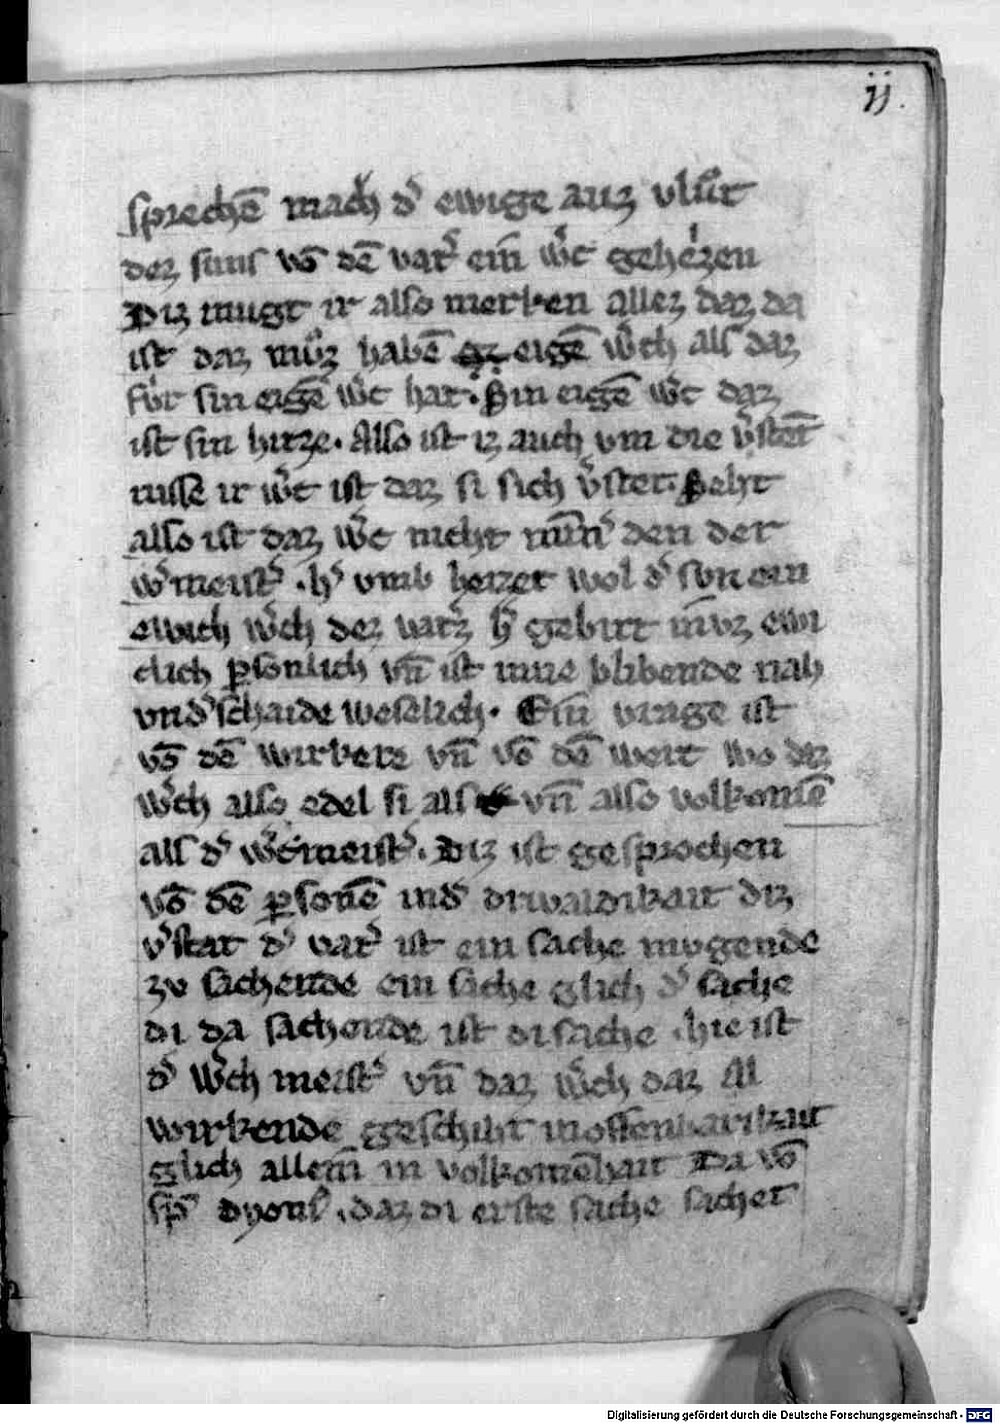 ij.
sprechē mach d̾ ewige auz vluͤt
dez suns vō dē vat̾ ein w̾c geheizen
Diz mugt ir also merken allez daz da
ist daz muͦz habē eigē w̾ch als daz
fuͤr sin eigē w̾c hat. Sin eigē w̾c daz
ist sin hitze. Also ist iz auch vm die v̾stēt
nisse ir w̾c ist daz si sich v̾stet. Seht
also ist daz w̾c nicht min̾ den der
w̾meist̾. h̾ vmb heizet wol d̾ sun ein
ewich w̾ch dez vat̾z h̾ gebirt in vz ewi
clich ꝑsonlich vn̄ ist inne blibende nah
vnd̾schaide weselich. Ein vrage ist
vō dē wirkere vn̄ vō dē wert wo daz
w̾ch also edel si als vn̄ also volkomē
als d̾ w̾cmeist̾. Diz ist gesprochen
vō dē ꝑsonē in d̾ drivaldikait diz
v̾stat d̾ vat̾ ist ein sache mvgende
zv sachende ein sache glich d̾ sache
di da sachende ist di sache. hie ist
d̾ w̾ch meist̾ vn̄ daz w̾ch daz Al
wirkende geschiht in offenbarikait
glich allein in volkomēhait Da vō
sp̄ dyonis̾. daz di erste sache sachet
Digitalisierung gefördert durch die Deutsche Forschungsgemeinschaft - DFG